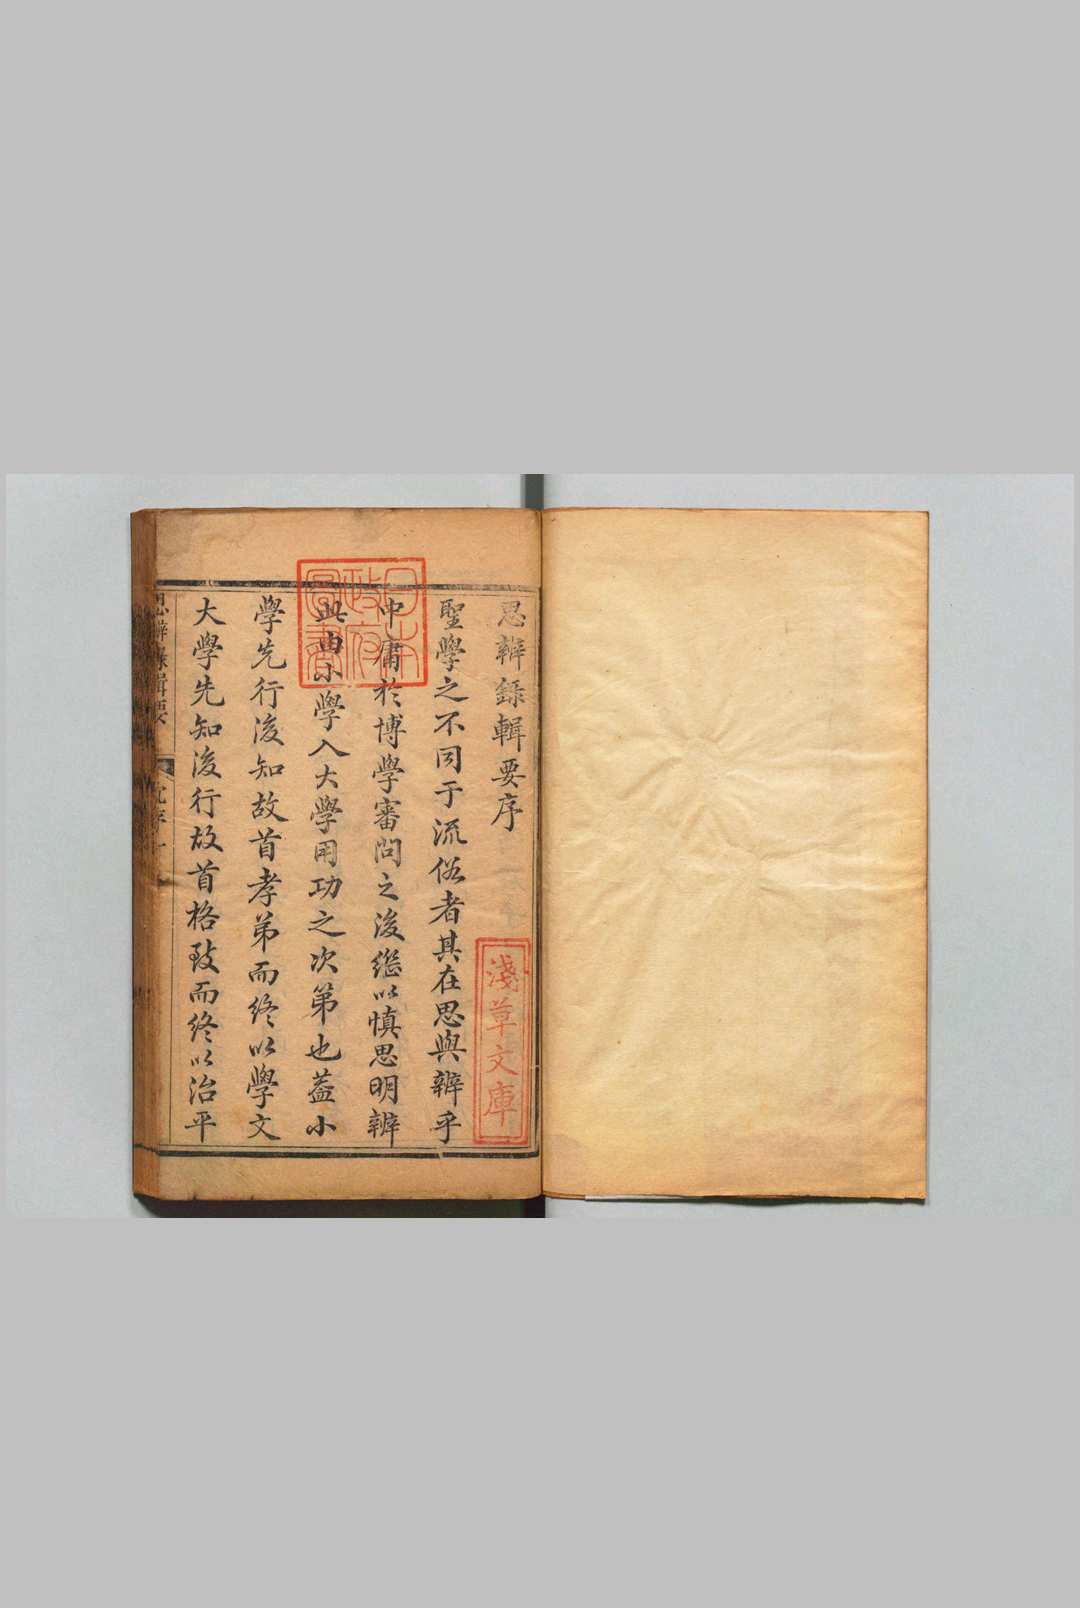 思辨録輯要序
聖學之不同于流俗者其在思與辨乎
中庸於博學審問之後繼以慎思明辨
此由小學入大學用功之次第也蓋小
學先行後知故首孝弟而終以學文
大學先知後行故首格致而終以治平
思辨録輯要
序一
日本
政府
圖書
淺草文庫